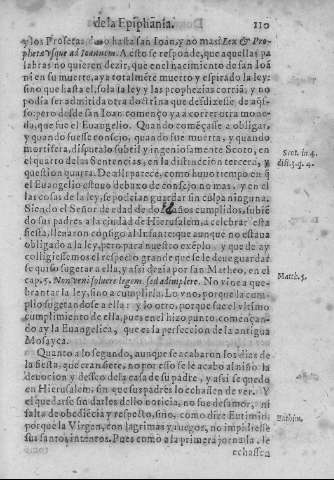 de la Epiphania. 110
y los Profetas duro hasta san Ioan, y no mas: Lex & Pro-
pheta vsque ad Ioannem. A esto se responde, que aquellas pa
labras no quieren dezir, que en el nacimiento de san Ioã
ni en su muerte, aya totalmẽte muerto y espirado la ley:
sino que hasta el, sola la ley y las prophezias corriã, y no
podia ser admitida otra doctrina que desdixesse, de aques-
so: pero desde san Ioan començo ya a correr otra mone-
da, que fue el Euangelio. Quando començasse a obligar,
y quando fuesse consejo, quando fue muerta, y quando
mortifera, disputalo subtil y ingeniosamente Scoto, en el
quarto de las Sentencias, en la distinction tercera, y
question quarta. De alli parece, como huuo tiempo en q̃
el Euangelio estuuo debaxo de consejo no mas, y en el
las cosas de la ley, se podeian guardar sin culpa ninguna.
Siendo el Señor de edad de doze años cumplidos, subiẽ
do sus padres a la ciudad de Hierusalem, a celebrar esta
fiesta, lleuaron cõsigo al Infante: que aunque no estaua
obligado a la ley, pero para nuestro exẽplo, y que de ay
colligiessemos el respecto grande que se le deue guardar
se quiso sugetar a ella, y assi dezia por san Matheo, en el
cap. 5. Non veni soluere legem, sed adimplere. No vine a que-
brantar la ley, sino a cumplirla. Lo vno, porque la cum-
plio sugetandose a ella: y lo otro, porque fue el vltimo
cumplimiento de ella, pues en el hizo punto, començan-
do ay la Euangelica, que es la perfection de la antigua
Mosayca.
Quanto a lo segundo, aunque se acabaron los dias de
la fiesta, que eran siete, no por esso se le acabo al niño la
deuocion y desseo de la casa de su padre, y assi se quedo
en Hierusalem, sin que sus padres lo echassen de ver. Y
el quedarse sin darles dello noticia, no fue desamor, ni
falta de obediẽcia y respecto, sino, como dize Eutimio,
porque la Virgen, con lagrimas y ruegos, no impidiesse
sus santos intentos. Pues como a la primera jornada, le
echassen
Scot. in 4.
dist. 3. q. 4.
Matth. 5.